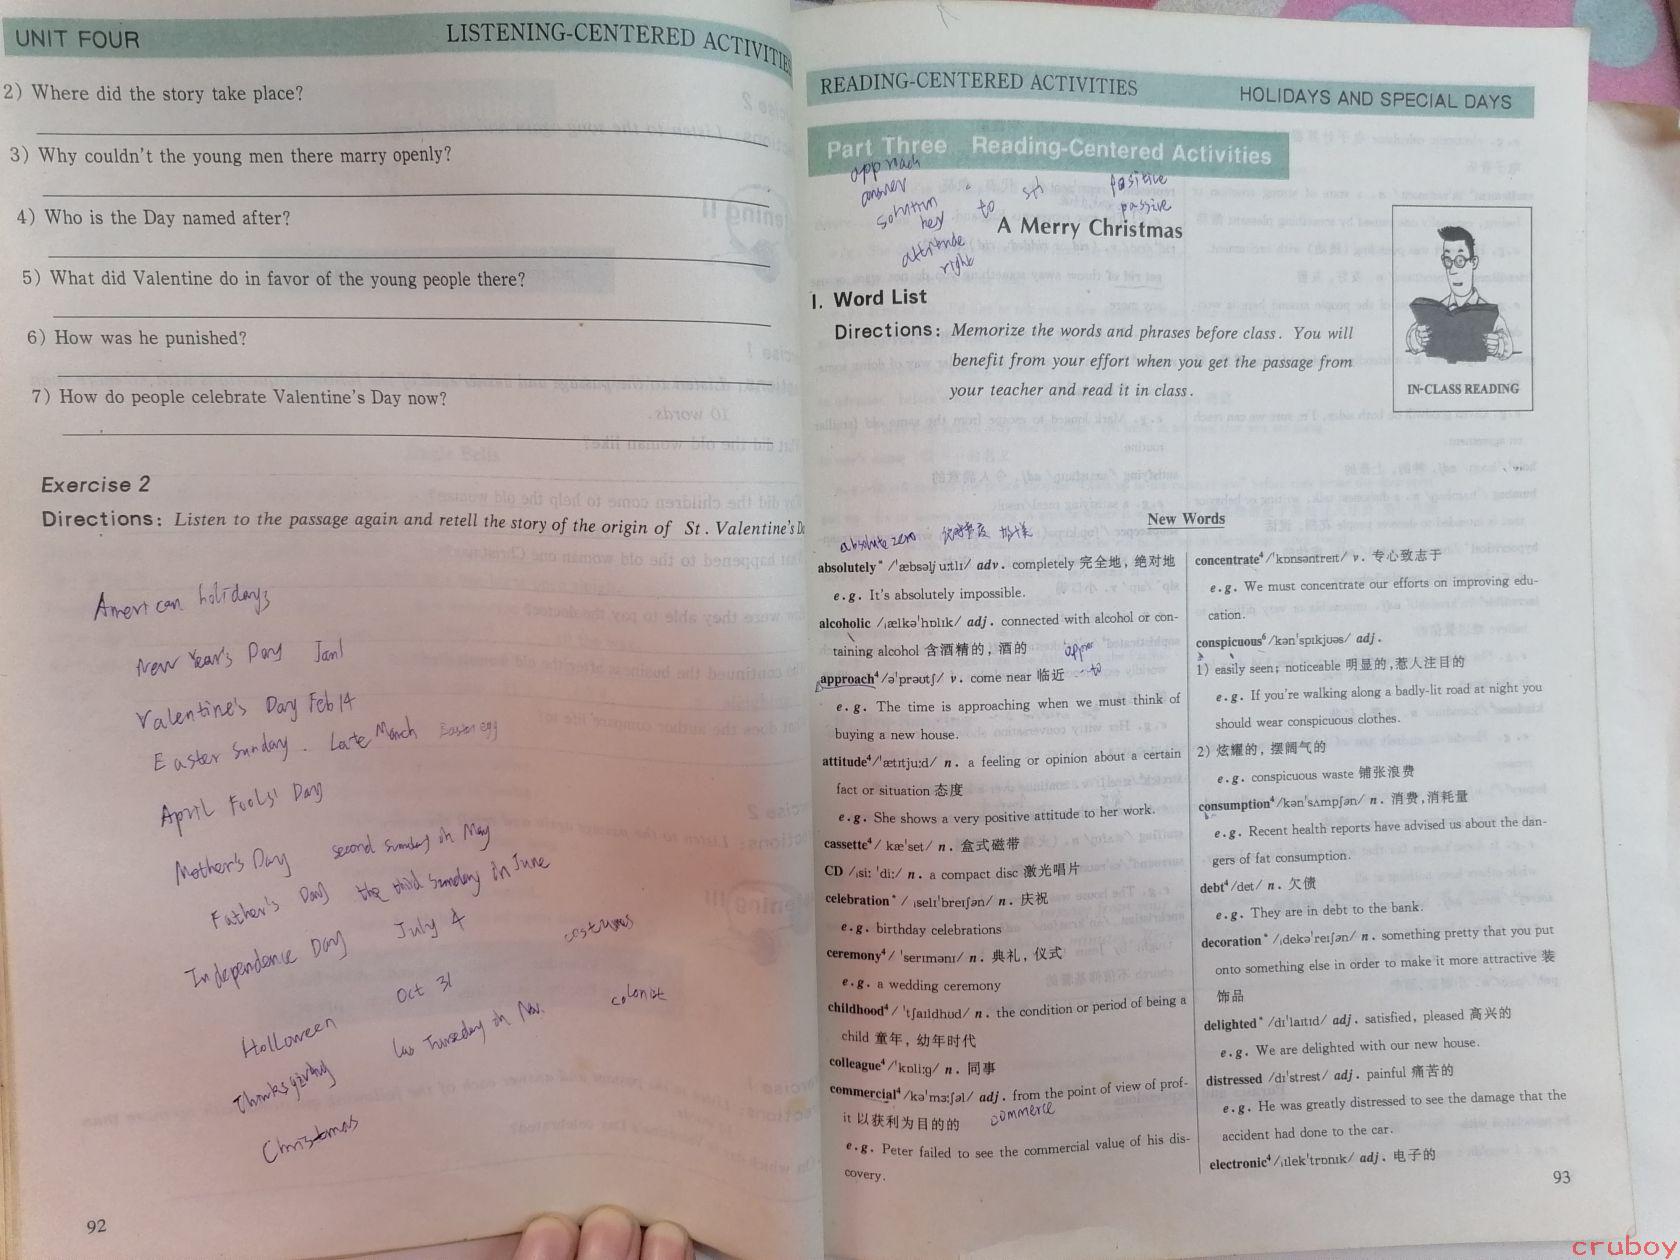 UNIT FOUR
LISTENING-CENTERED ACTIVITIES
2) Where did the story take place?
3) Why couldn't the young men there marry openly?
4) Who is the Day named after?
5) What did Valentine do in favor of the young people there?
6) How was he punished?
7) How do people celebrate Valentine's Day now?
Exercise 2
Directions: Listen to the passage again and retell the story of the origin of St. Valentine's Da
American holidays
New Year's Day Jan1
Valentine's Day Feb 14
Easter Sunday. Late March Easter egg
April Fools' Day
Mother's Day second Sunday in May
Father's Day the third Sunday in June
Independence Day July 4
costumes
Holloween Oct 31
colonist
Thanksgiving Thursday in Nov.
Christmas
92
READING-CENTERED ACTIVITIES
HOLIDAYS AND SPECIAL DAYS
Part Three Reading-Centered Activities
approach
answer
solution
key to sth
attitude
right
positive
passive
A Merry Christmas
IN-CLASS READING
I. Word List
Directions: Memorize the words and phrases before class. You will
benefit from your effort when you get the passage from
your teacher and read it in class.
New Words
absolute zero
absolutely* /ˈæbsəlјuːtlɪ/ adv. completely 完全地, 绝对地
e.g. It's absolutely impossible.
alcoholic /ˌælkəˈhɒlɪk/ adj. connected with alcohol or con-
taining alcohol 含酒精的, 酒的
approach⁴ /əˈprəʊtʃ/ v. come near 临近 to
e.g. The time is approaching when we must think of
buying a new house.
attitude⁴ /ˈætɪtjuːd/ n. a feeling or opinion about a certain
fact or situation 态度
e.g. She shows a very positive attitude to her work.
cassette⁴ / kæˈset/ n. 盒式磁带
CD /ˌsiː ˈdiː/ n. a compact disc 激光唱片
celebration* / ˌselɪˈbreɪʃən/ n. 庆祝
e.g. birthday celebrations
ceremony⁴ / ˈserɪmənɪ/ n. 典礼, 仪式
e.g. a wedding ceremony
childhood⁴ / ˈtʃaɪldhud/ n. the condition or period of being a
child 童年, 幼年时代
colleague⁴ /ˈkɒliːg/ n. 同事
commercial⁴ /kəˈmɜːʃəl/ adj. from the point of view of prof-
it 以获利为目的的 commerce
e.g. Peter failed to see the commercial value of his dis-
covery.
concentrate⁴ /ˈkɒnsəntreɪt/ v. 专心致志于
e.g. We must concentrate our efforts on improving edu-
cation.
conspicuous⁶ /kənˈspɪkjuəs/ adj.
1) easily seen; noticeable 明显的,惹人注目的
e.g. If you're walking along a badly-lit road at night you
should wear conspicuous clothes.
2) 炫耀的, 摆阔气的
e.g. conspicuous waste 铺张浪费
consumption⁴ /kənˈsʌmpʃən/ n. 消费,消耗量
e.g. Recent health reports have advised us about the dan-
gers of fat consumption.
debt⁴ /det/ n. 欠债
e.g. They are in debt to the bank.
decoration* /ˌdekəˈreɪʃən/ n. something pretty that you put
onto something else in order to make it more attractive 装
饰品
delighted* /dɪˈlaɪtɪd/ adj. satisfied, pleased 高兴的
e.g. We are delighted with our new house.
distressed /dɪˈstrest/ adj. painful 痛苦的
e.g. He was greatly distressed to see the damage that the
accident had done to the car.
electronic⁴ /ˌɪlekˈtrɒnɪk/ adj. 电子的
93
cruboy